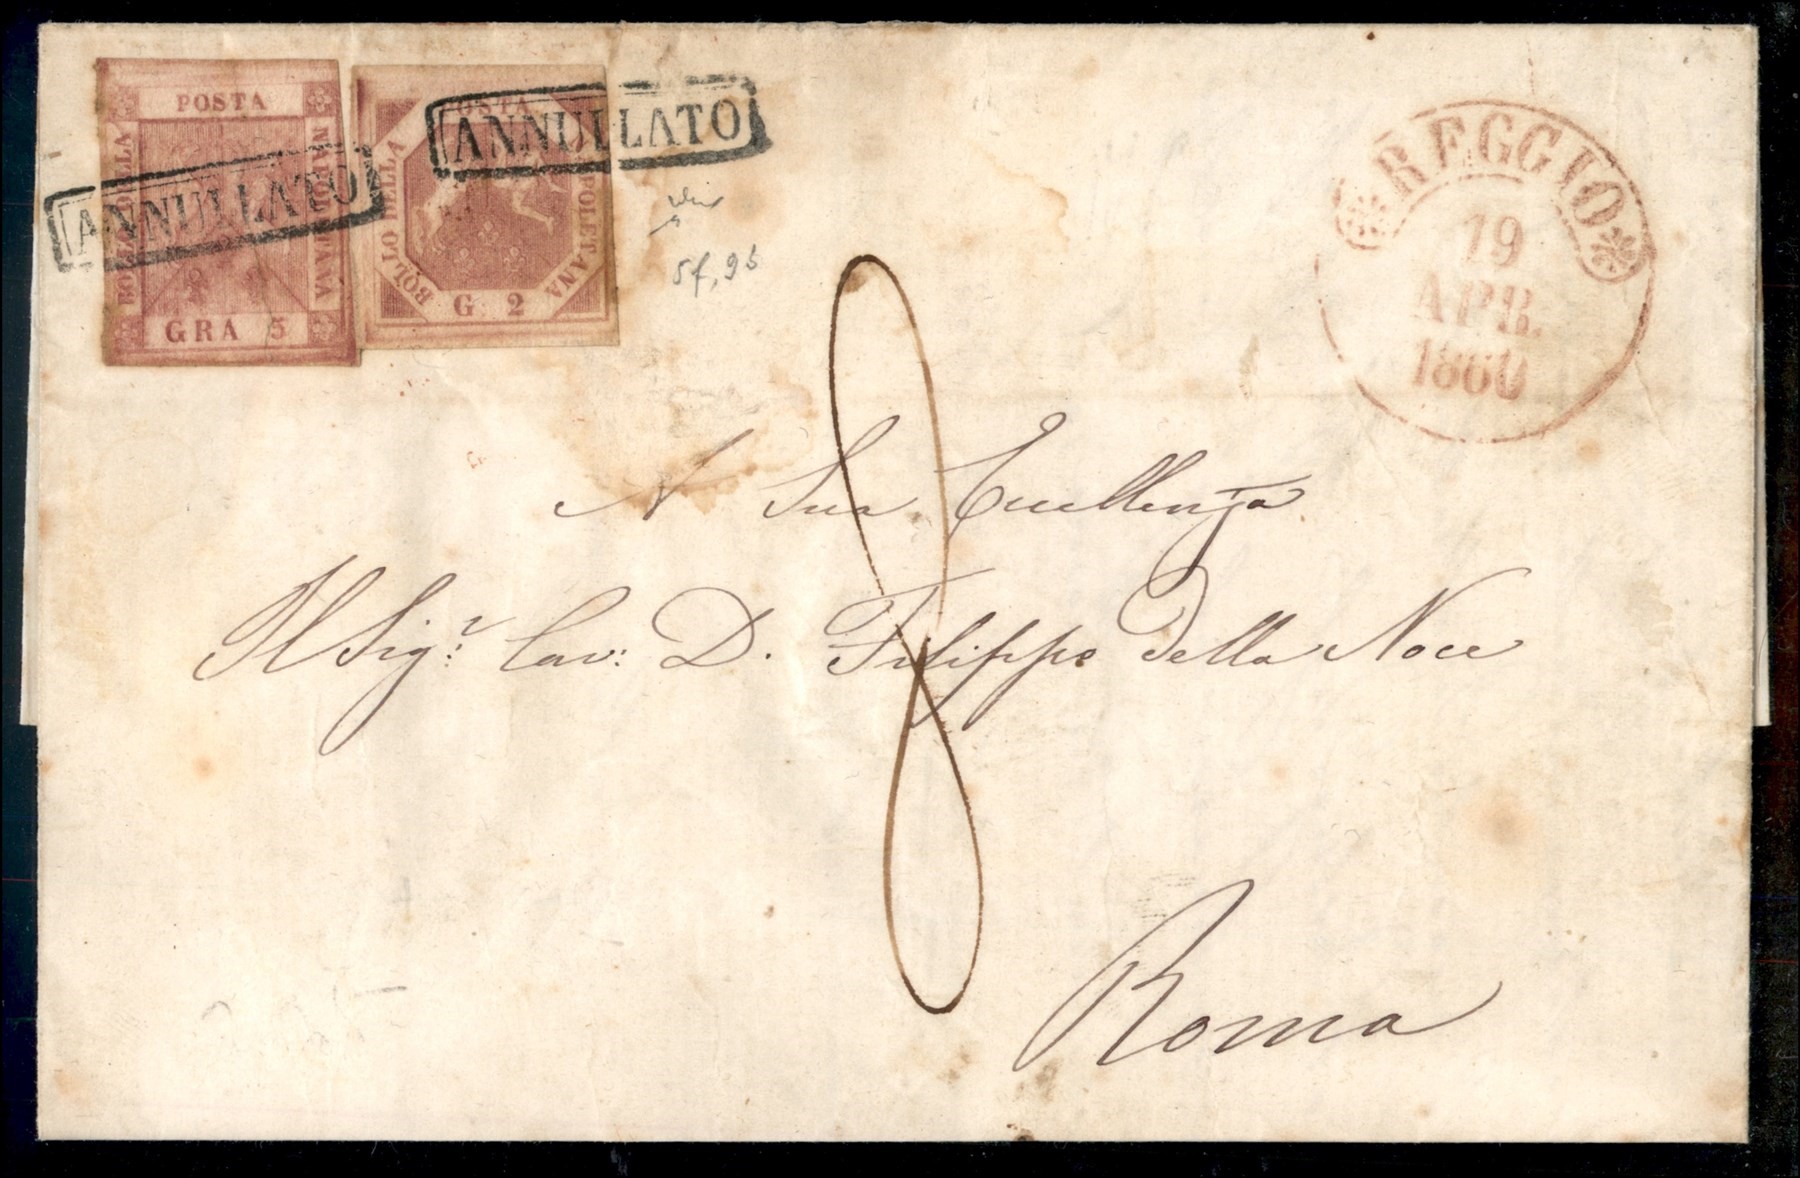 POSTA
BOLLO DELLA
NAPOLETANA
GRA 5
ANNULLATO
POSTA
BOLLO DELLA
NAPOLETANA
G 2
ANNULLATO
5f, 95
REGGIO
19
APR.
1860
8
A Sua Eccellenza
Il Sigr: Cav: D. Filippo della Noce
Roma